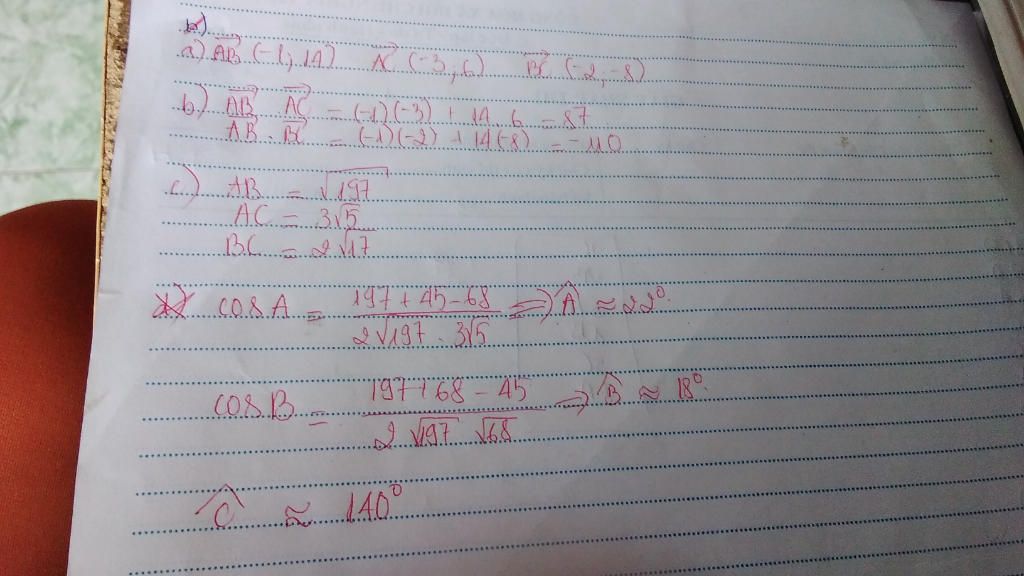 a) \overrightarrow{AB} (-1, 14) \overrightarrow{AC} (-3, 6) \overrightarrow{BC} (-2, -8)
b) \overrightarrow{AB} \overrightarrow{AC} = (-1)(-3) + 14 . 6 = 87
\overrightarrow{AB} . \overrightarrow{BC} = (-1)(-2) + 14(-8) = -110
c) AB = √197
AC = 3√5
BC = 2√17
cos A = \frac{197 + 45 - 68}{2√197 . 3√5} => Â ≈ 22°.
cos B = \frac{197 + 68 - 45}{2 √197 √68} => B̂ ≈ 18°.
Ĉ ≈ 140°